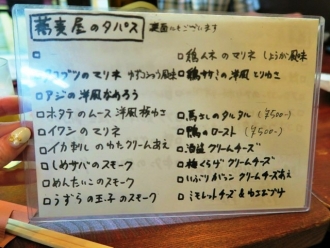 蕎麦屋のタパス 裏面にもございます
□
□ツブツブのマリネ ゆずこしょう風味
□アジの洋風なめろう
□ホタテのムース 洋風板ゆさ
□イワシのマリネ
□イカ刺しのわたクリーム和え
□しめサバのスモーク
□めんたいこのスモーク
□うずらの玉子のスモーク
□鶏ハムのマリネ しょうが風味
□鶏ササミの洋風とりわさ
□
□馬さしのタルタル (¥500-)
□鴨のロースト (¥500-)
□酒盗クリームチーズ
□梅くらげクリームチーズ
□いぶりがっこクリームチーズ和え
□ミモレットチーズ&